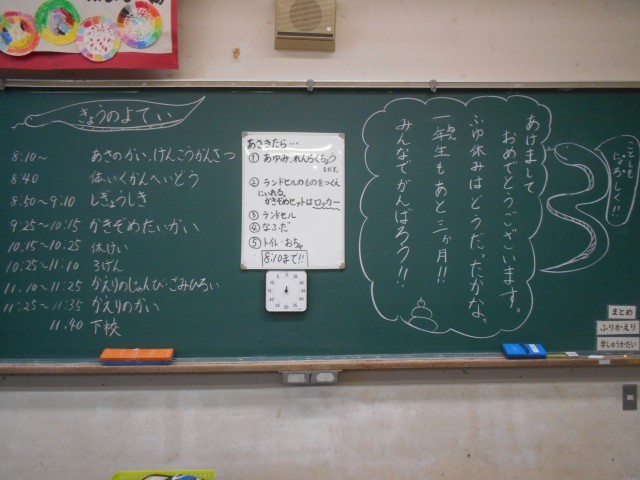 きょうのよてい
8:10~ あさのかい、けんこうかんさつ
8:40 体いくかんへいどう
8:50~9:10 しぎょうしき
9:25~10:15 かきぞめたいかい
10:15~10:25 休けい
10:25~11:10 3げん
11:10~11:25 かえりのじゅんび・ごみひろい
11:25~11:35 かえりのかい
11:40 下校
あさきたら…
① あゆみ、れんらくちょう
をだす。
② ランドセルのものをつくえ
にいれる。
かきぞめセットはロッカー
③ ランドセル
④ なふだ
⑤ トイレ・おちゃ
8:10まで!!
あけまして
おめでとうございます。
ふゆ休みはどうだったかな。
一年生もあと三か月!!
みんなでがんばろう!!
ことしも
よろしく!!
まとめ
ふりかえり
学しゅうかだい